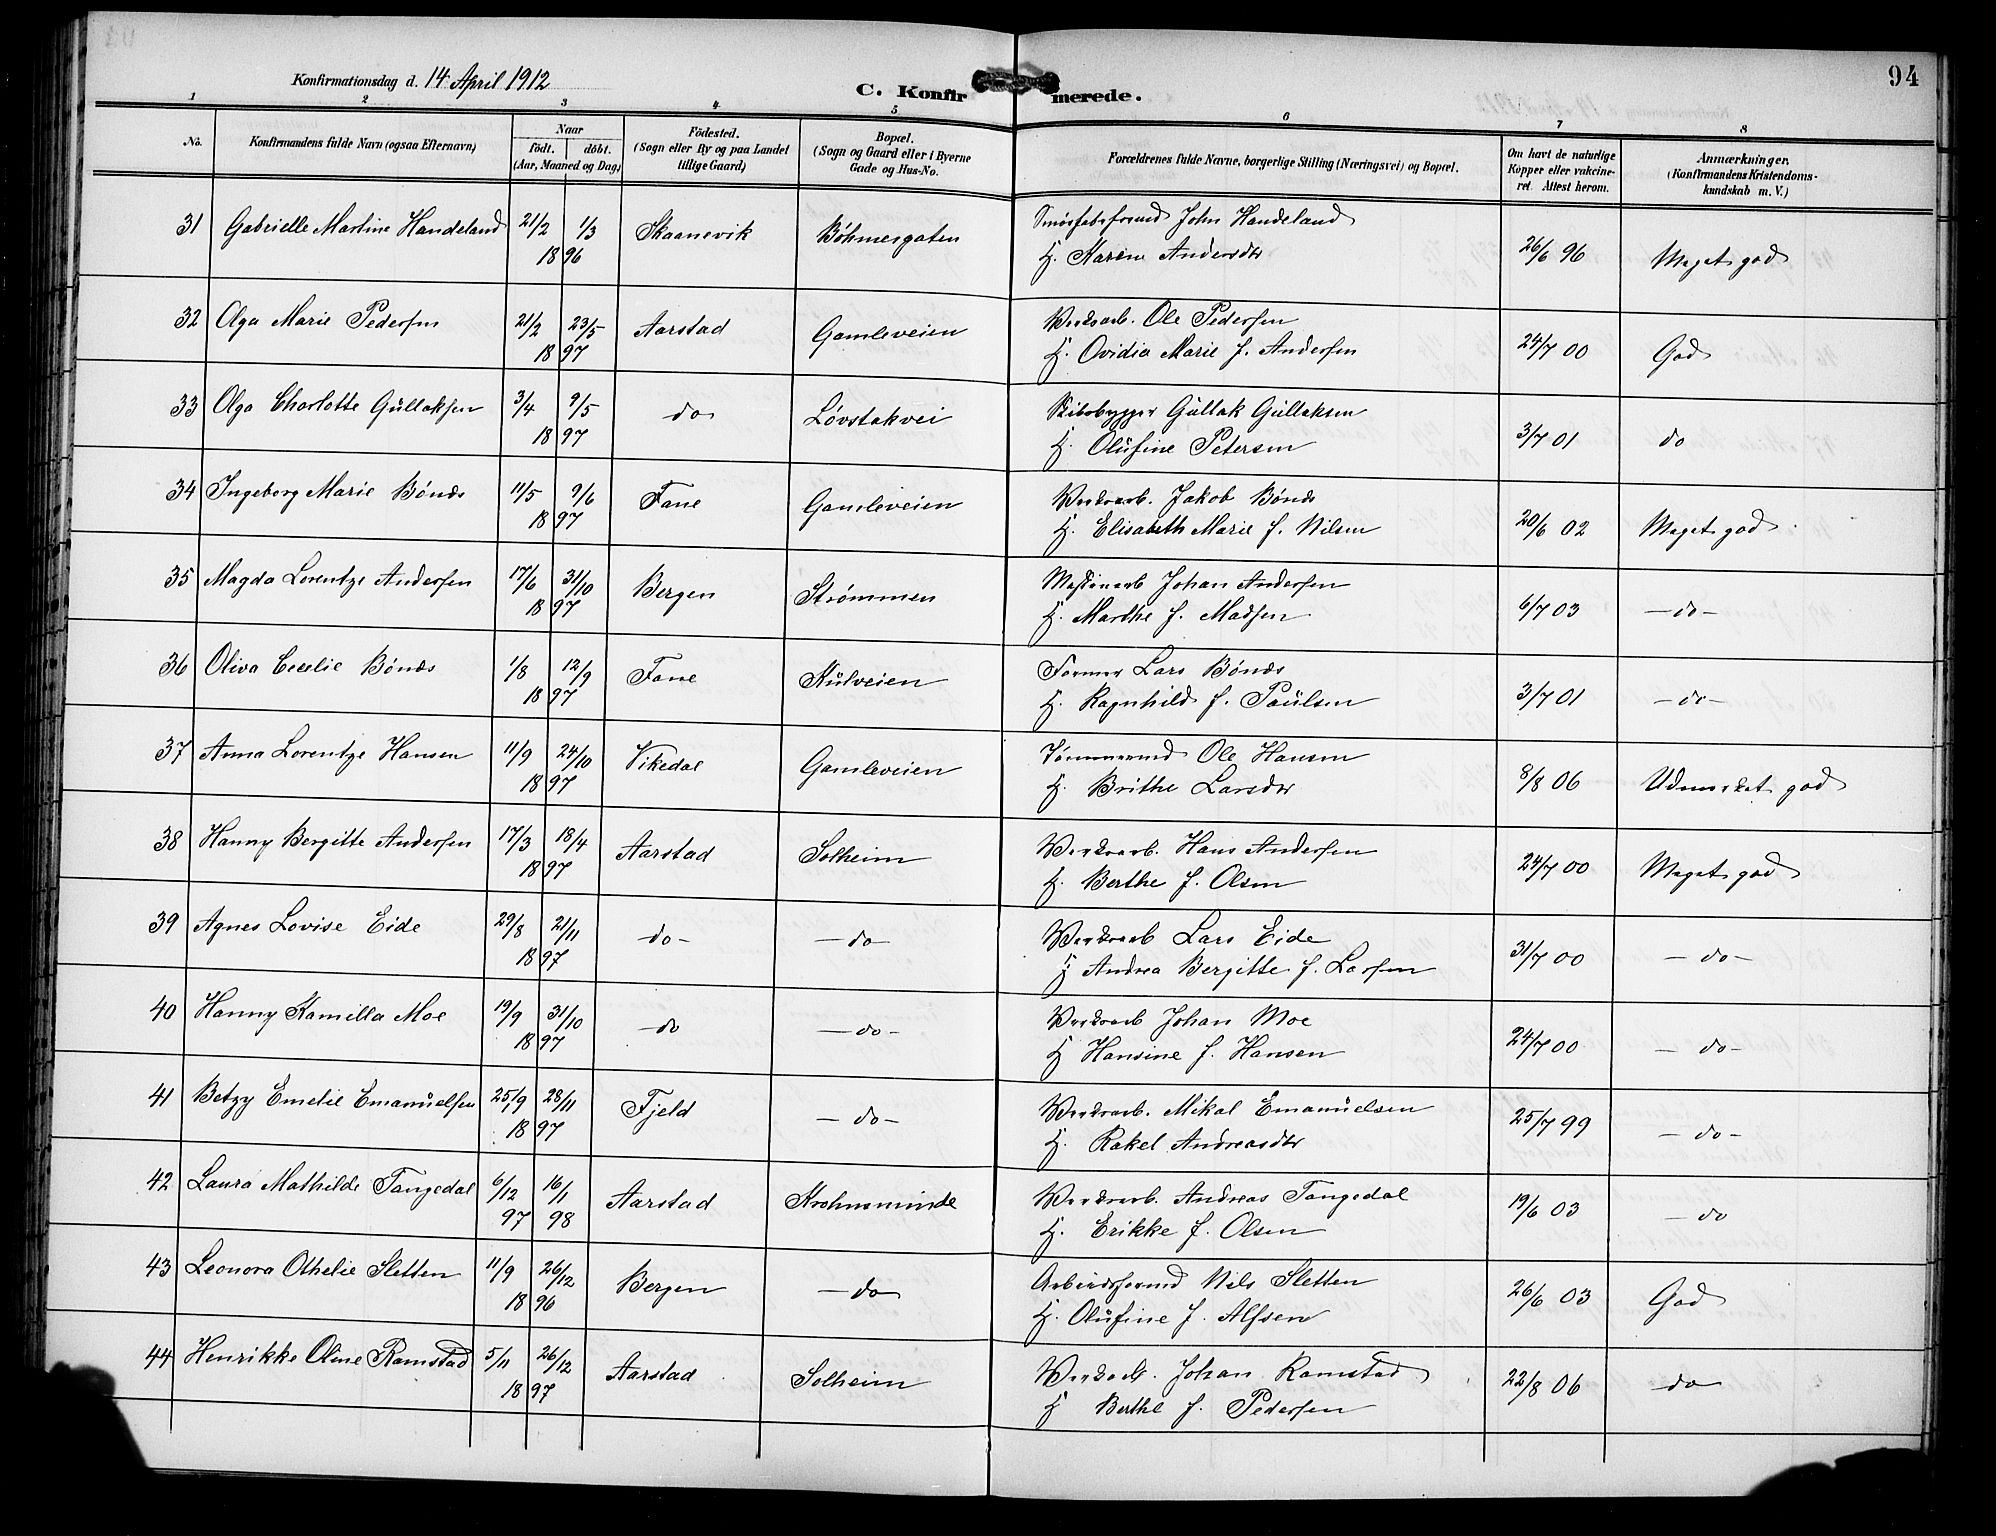 94
Konfirmationsdag d. 14 April 1912
C. Konfirmerede.
1 2 3 4 5 6 7 8
No. Konfirmandens fulde Navn (ogsaa Efternavn) Naar født. døbt. (Aar, Maaned og Dag) Födested. (Sogn eller By og paa Landet tillige Gaard) Bopæl. (Sogn og Gaard eller i Byerne Gade og Hus-No. Forældrenes fulde Navne, borgerlige Stilling (Næringsvei) og Bopæl. Om havt de naturlige Kopper eller vakcineret. Attest herom. Anmærkninger. (Konfirmandens Kristendomskundskab m. V.)
31 Gabrielle Martine Handeland 21/2 1/3 Skaanevik Böhmergaten John Handeland
1896 H. Karen Andersdtr 26/6 96 Meget god
32 Olga Marie Pedersen 21/2 23/5 Aarstad Gamleveien Verksarb. Ole Pedersen
1897 H. Ovidia Marie f. Andersen 24/7 00 God
33 Olga Charlotte Gullaksen 3/4 9/5 do Løvstakvei Skibsbygger Gullak Gullaksen
1897 H. Olufine Petersen 3/7 01 do
34 Ingeborg Marie Bønæs 11/5 9/6 Fane Gamleveien Verksarb. Jakob Bønæs
1897 H. Elisabeth Marie f. Nilsen 20/6 02 Meget god
35 Magda Lorentze Andersen 17/6 31/10 Bergen Strømmen Maskinarb Johan Andersen
1897 H. Marthe f. Madsen 6/7 03 - do -
36 Oliva Cecelie Bønæs 1/8 12/9 Fane Kulveien Former Lars Bønæs
1897 H. Ragnhild f. Paulsen 3/7 01 - do -
37 Anna Lorentze Hansen 11/9 24/10 Vikedal Gamleveien Tømmermd Ole Hansen
1897 H. Brithe Larsdtr 8/8 06 Udmerket god
38 Hanny Bergitte Andersen 17/3 18/4 Aarstad Solheim Verksarb. Hans Andersen
1897 H. Berthe f. Olsen 24/7 00 Meget god
39 Agnes Lovise Eide 29/8 21/11 - do - - do - Verksarb Lars Eide
1897 H Andrea Bergitte f. Larsen 31/7 00 - do -
40 Hanny Kamilla Moe 19/9 31/10 - do - do - Verksarb Johan Moe
1897 H Hansine f. Hansen 24/7 00 - do -
41 Betzy Emelie Emanuelsen 25/9 28/11 Fjeld - do - Verksarb. Mikal Emanuelsen
1897 H. Rakel Andreasdtr 25/7 99 - do -
42 Laura Mathilde Tangedal 6/12 16/1 Aarstad Krohnsminde Verksarb. Andreas Tangedal
97 98 H. Erikke f. Olsen 19/6 03 - do
43 Leonora Othelie Sletten 11/9 26/12 Bergen - do Arbeidsformd Nils Sletten
1896 H. Olufine f. Alfsen 26/6 03 God
44 Henrikke Oline Ramstad 5/11 26/12 Aarstad Solheim Verksarb. Johan Ramstad
1897 H Berthe f. Pedersen 22/8 06 do